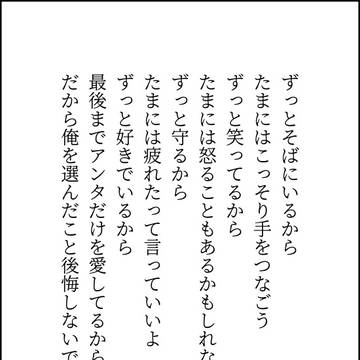 ずっとそばにいるから
たまにはこっそり手をつなごう
ずっと笑ってるから
たまには怒ることもあるかもしれな
ずっと守るから
たまには疲れたって言っていいよ
ずっと好きでいるから
最後までアンタだけを愛してるから
だから俺を選んだこと後悔しないで